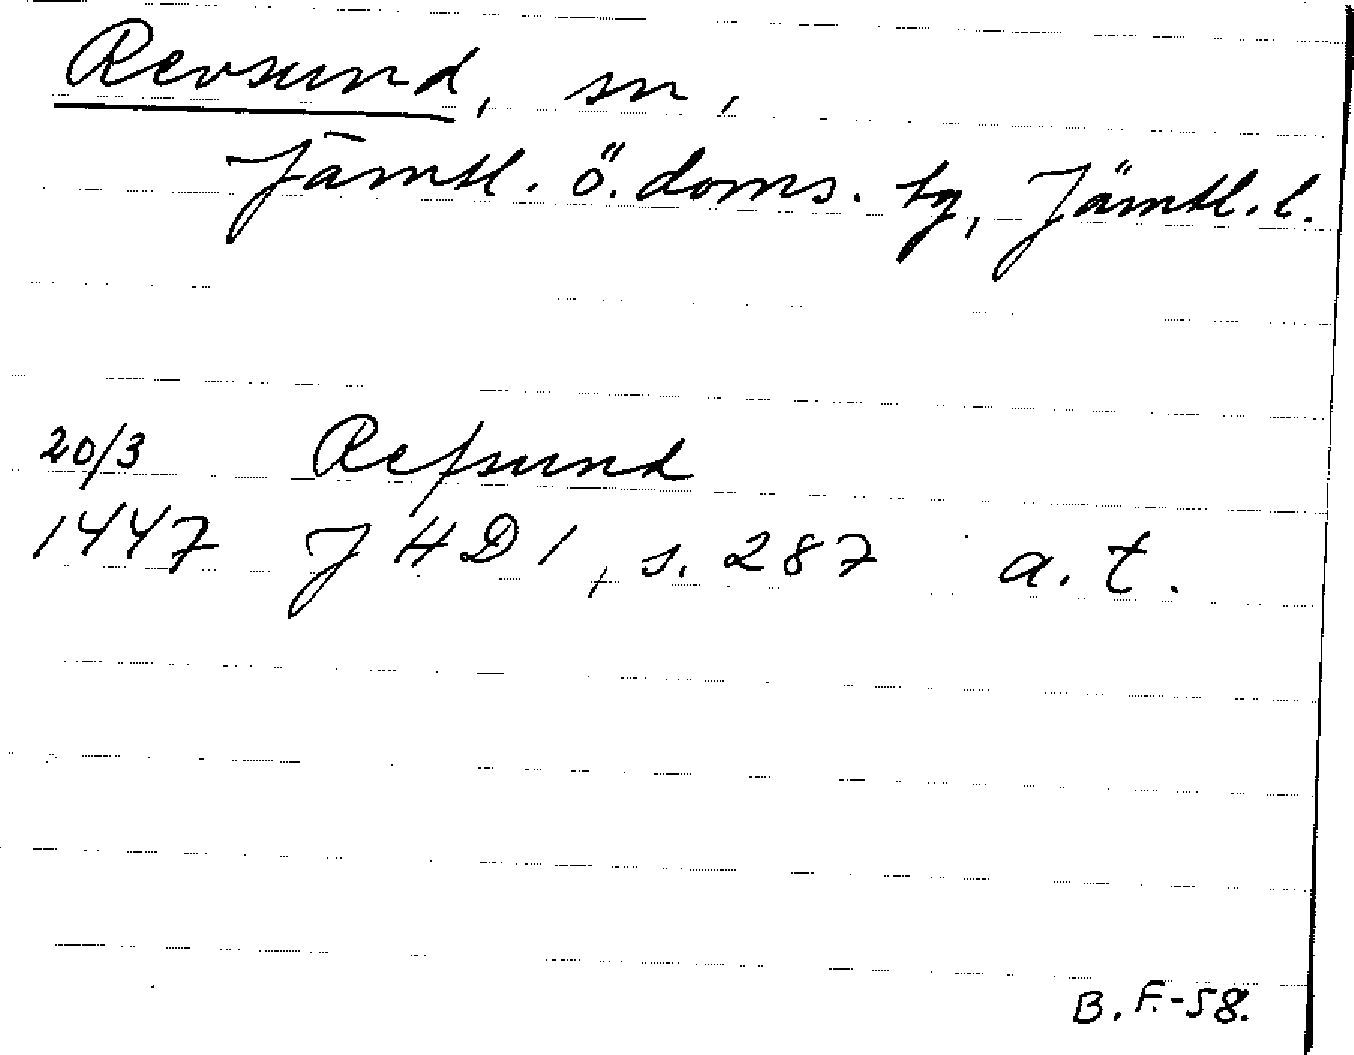 Revsund, sn,
Jämtl. ö. doms. tg, Jämtl. l.
20/3 Refsund
1447 J H D 1, s. 287 a. t.
B. F. -58.